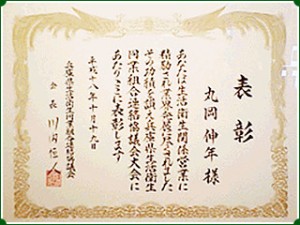 表彰
丸岡伸年様
あなたは生活衛生関係営業に
精励され業界の発展に尽されました
その功績を讃え兵庫県生活衛生
同業組合連絡協議会大会に
あたりここに表彰します
平成十八年十月十九日
兵庫県生活衛生同業組合連絡協議会
会長